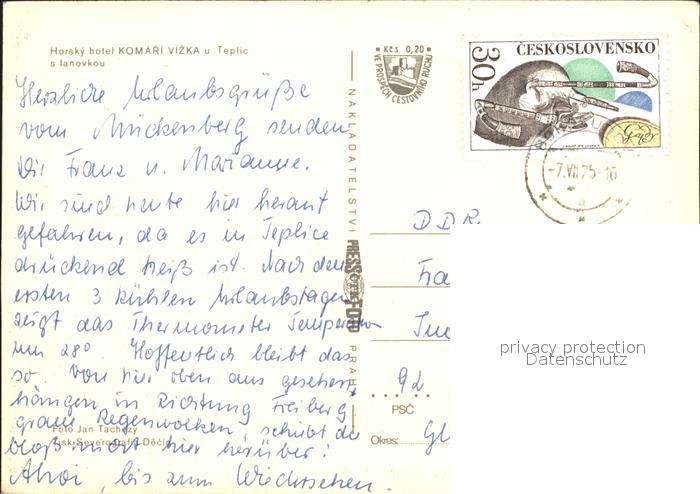 Horský hotel KOMÁŘÍ VÍŽKA u Teplic
s lanovkou
Herzliche Urlaubsgrüße
vom Mückenberg senden
Dir Franz u. Marianne.
Wir sind heute hier herauf
gefahren, da es in Teplice
drückend heiß ist. Nach den
ersten 3 kühlen Urlaubstagen
zeigt das Thermometer Temperaturen
um 28°. Hoffentlich bleibt das
so. Von hier oben aus gesehen
hängen in Richtung Freiberg
graue Regenwolken, schiebt die
bloß nicht hier herüber!
Ahoi, bis zum Wiedersehen.
Foto Jan Tachezy
Tisk Severografia Děčín
NAKLADATELSTVÍ PRESSFOTO PRAHA
Kčs 0,20
VE PROSPĚCH CESTOVNÍHO RUCHU
ČESKOSLOVENSKO
30h
Gajdy
-7.VII.75-10
DDR
Fa
9d
PSČ
Okres: Gl
privacy protection
Datenschutz